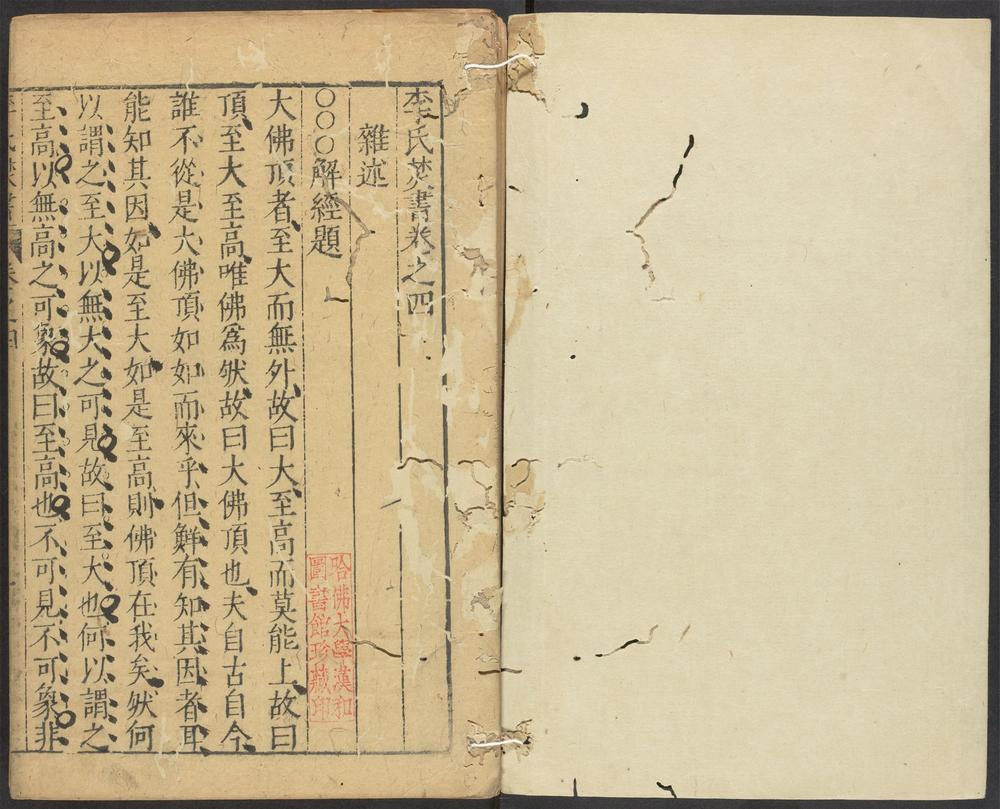 李氏焚書卷之四
雜述
○○○解經題
大佛頂者至大而無外故曰大至高而莫能上故曰
頂至大至高唯佛爲然故曰大佛頂也夫自古自今
誰不從是大佛頂如如而來乎但鮮有知其因者耳
能知其因如是至大如是至高則佛頂在我矣然何
以謂之至大以無大之可見故曰至大也何以謂之
至高以無高之可象故曰至高也不可見不可象非
哈佛大學漢和
圖書館珍藏印